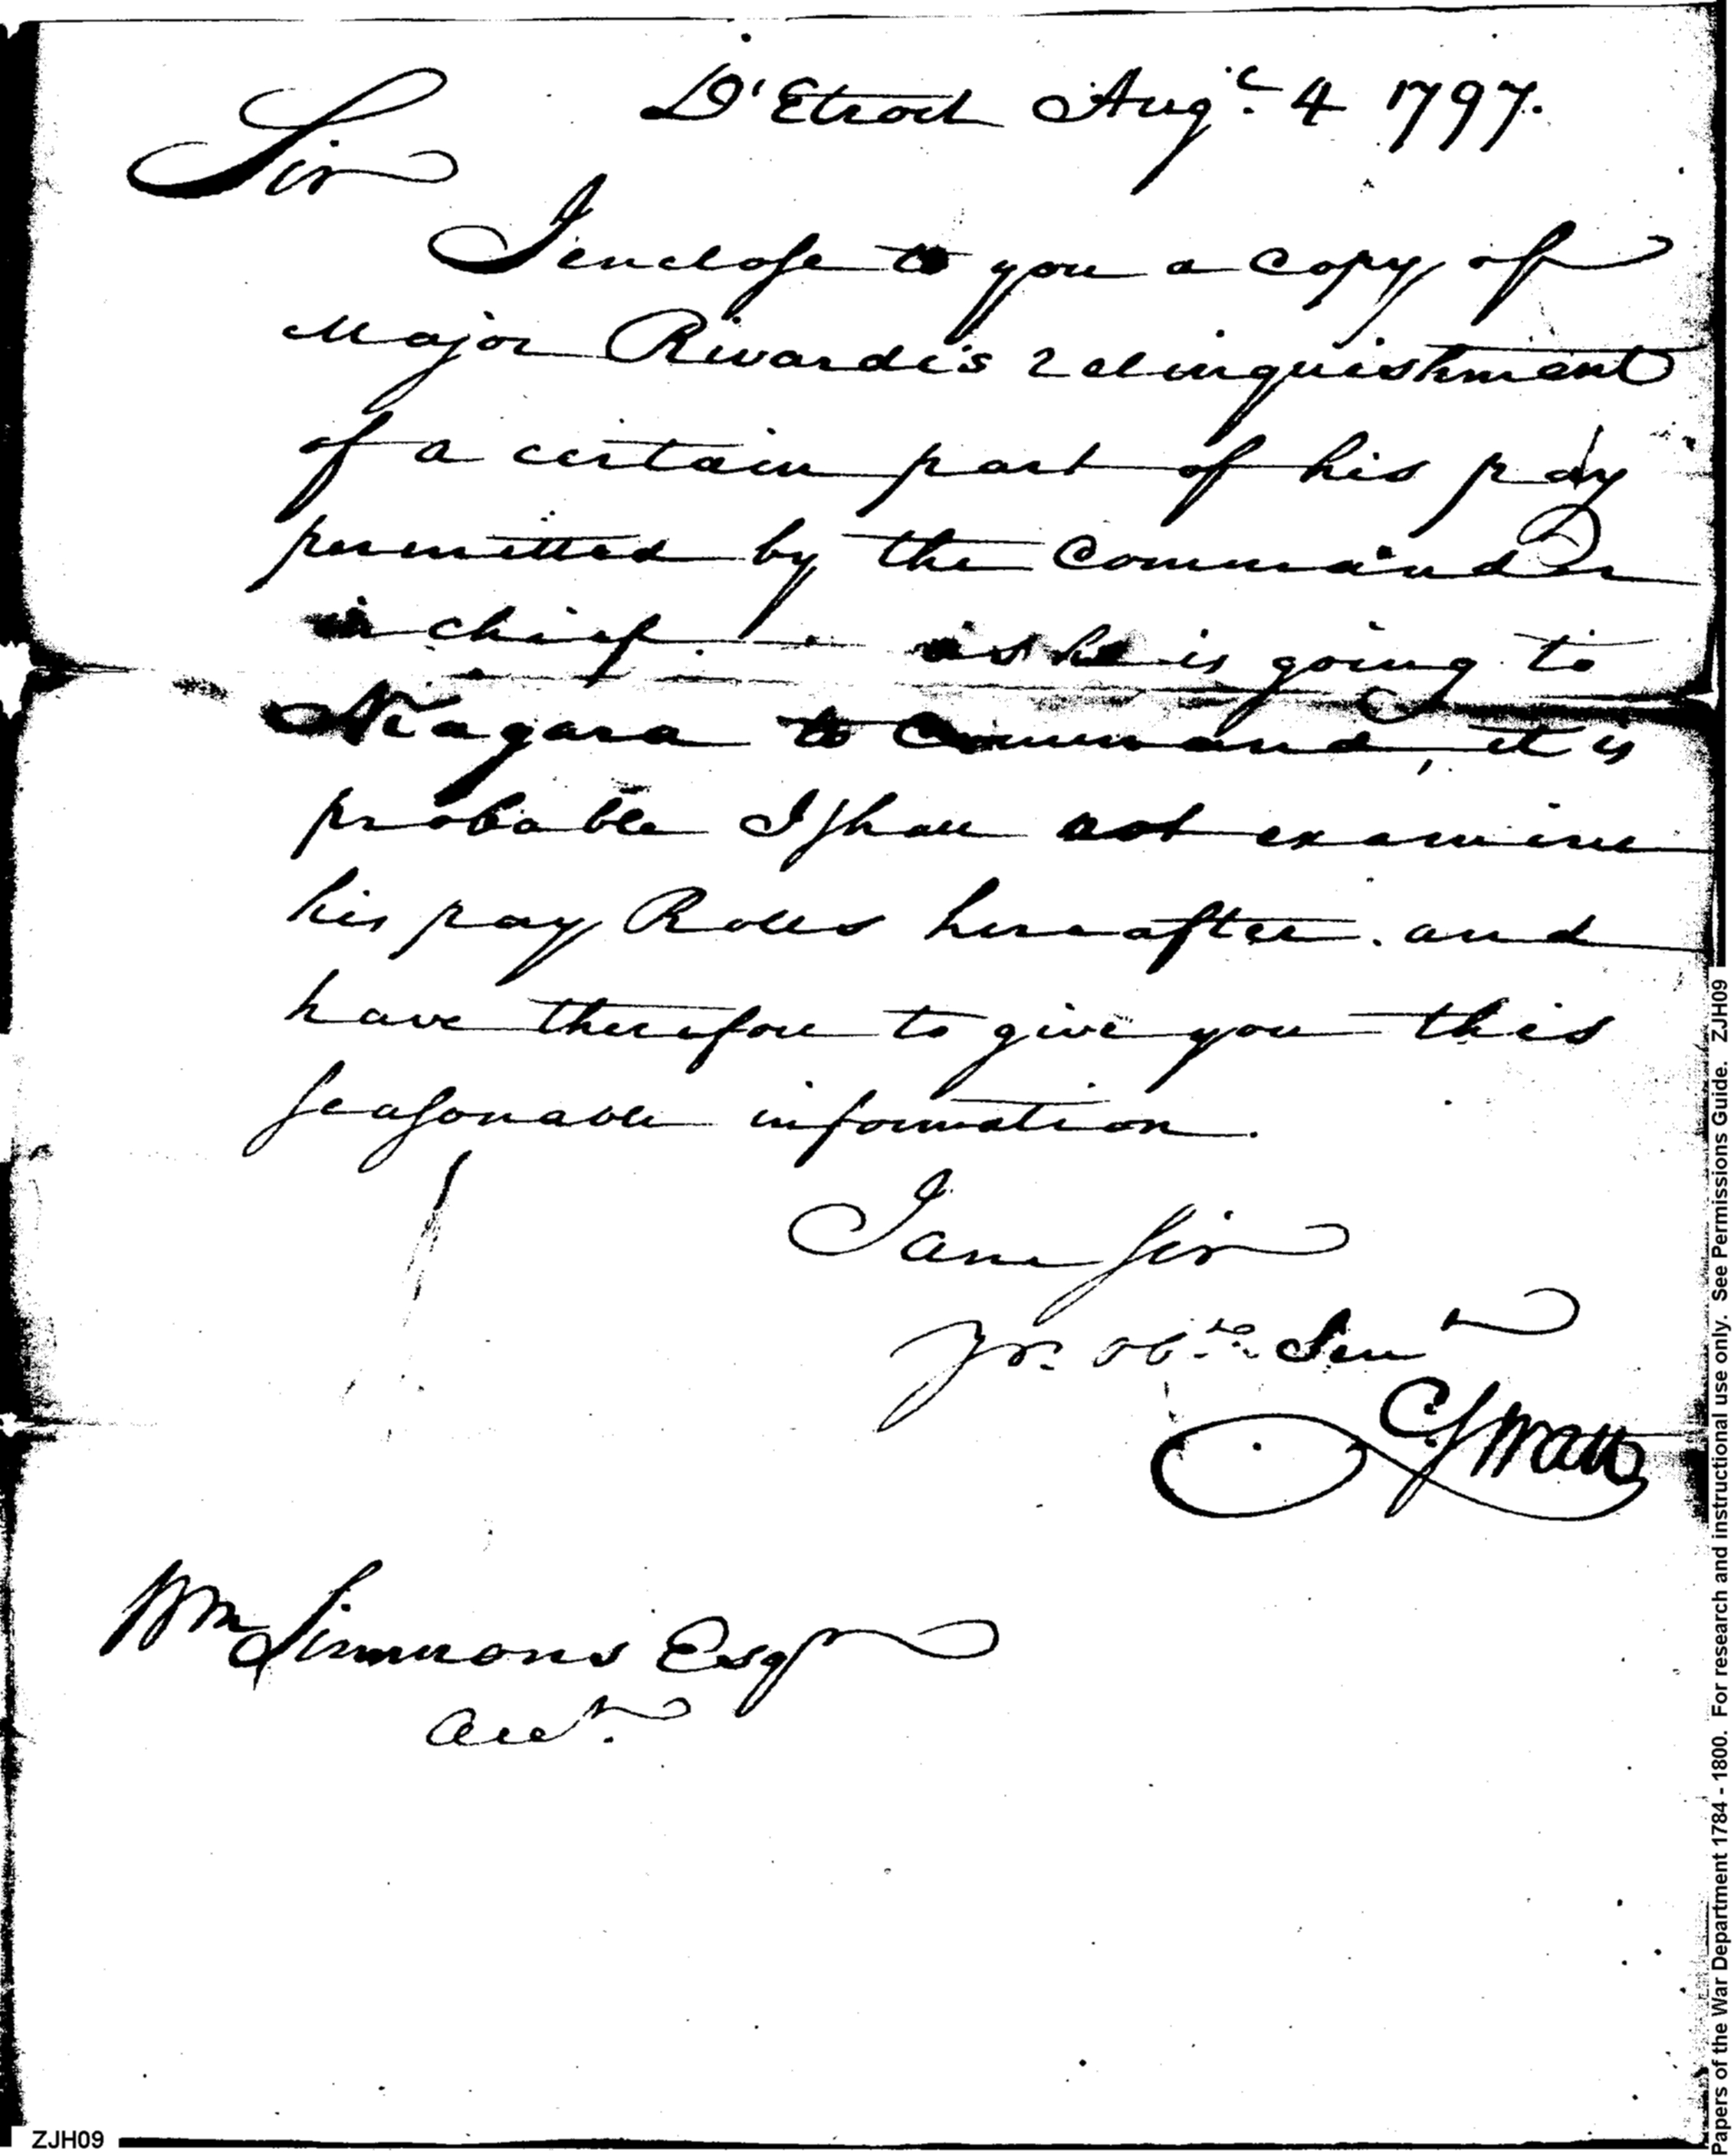 D'Etroit Augt. 4 1797.
Sir
I enclose to you a copy of
Major Rivardi's relinquishment
of a certain part of his pay
permitted by the Commander
in chief. as he is going to
Niagara to Command, it is
probable I shall not examine
his pay Rolls hereafter. and
have therefore to give you this
seasonable information.
I am Sir
Yr. obt. Sert
C Swan
Wm Simmons Esqr
Acct.
Papers of the War Department 1784 - 1800. For research and instructional use only. See Permissions Guide. ZJH09
ZJH09